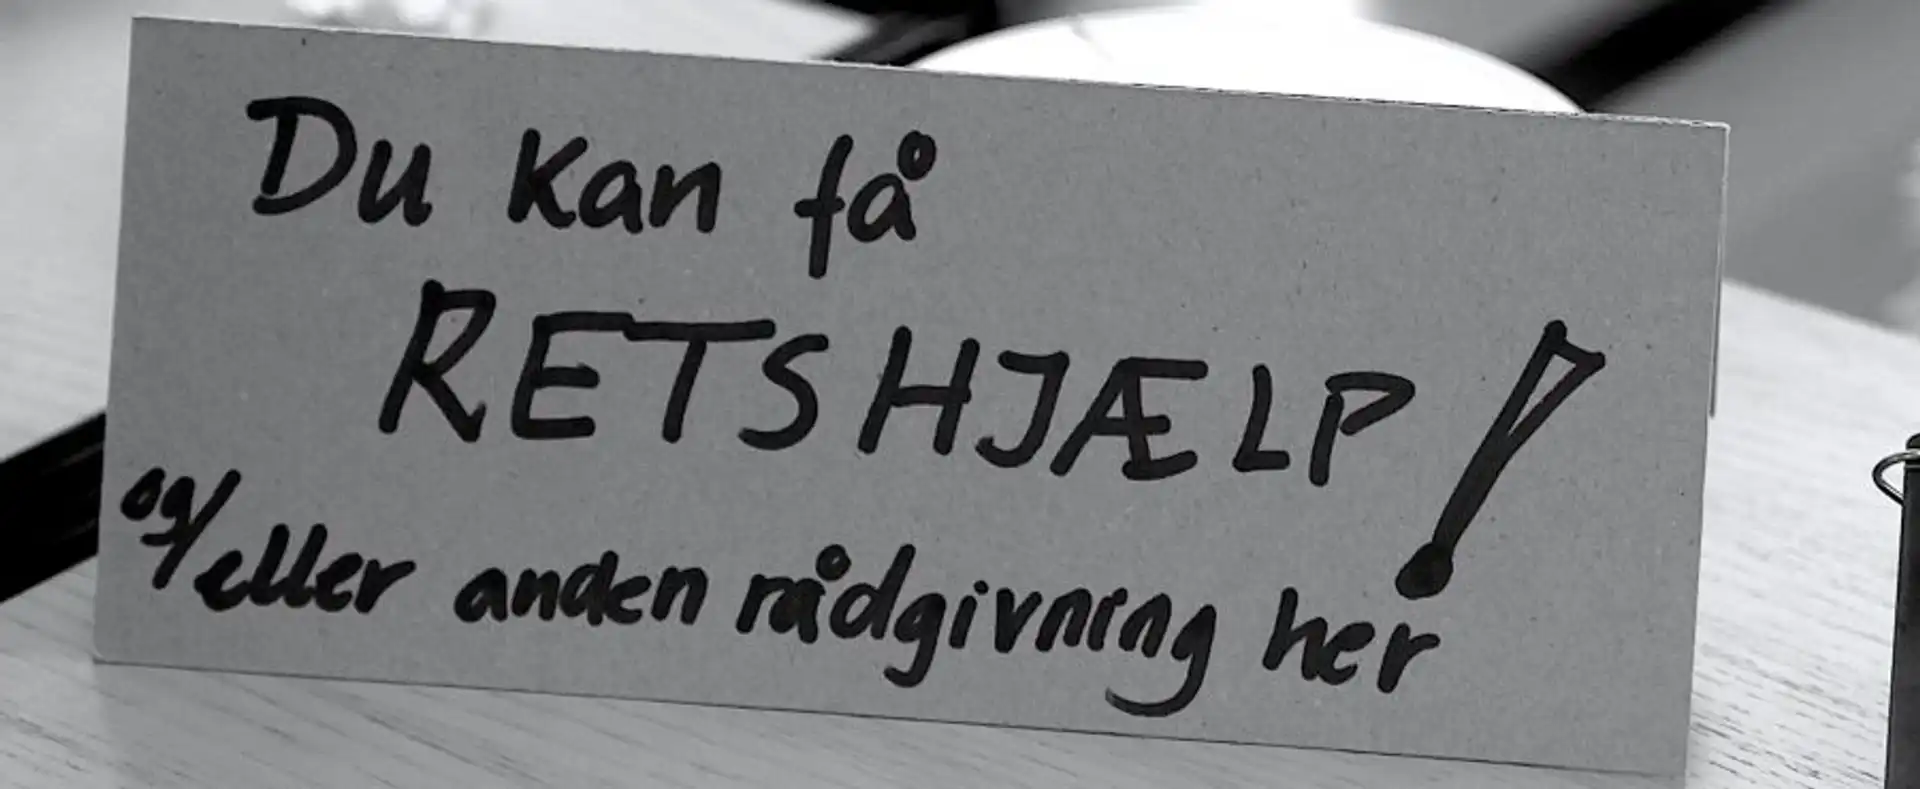 Du kan få
RETSHJÆLP!
og/eller anden rådgivning her